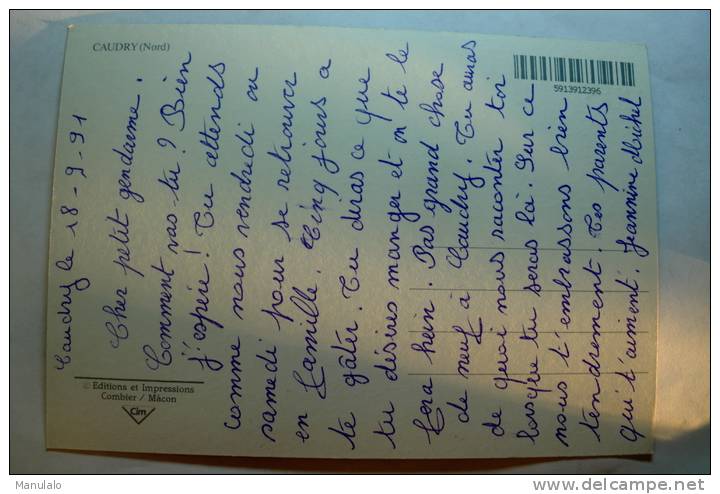 CAUDRY (Nord)
5913912396
© Editions et Impressions
Combier / Macon
Cim
Caudry le 18-9-91
Cher petit gendarme.
Comment vas tu ? Bien
j'espère ! Tu attends
comme nous vendredi ou
samedi pour se retrouver
en famille. Cinq jours a
te gâter. Tu diras ce que
tu désires manger et on te le
fera hein. Pas grand chose
de neuf à Caudry. Tu auras
de quoi nous raconter toi
lorsque tu seras là. Sur ce
nous t'embrassons bien
tendrement. Tes parents
qui t'aiment. Jeannine Michel
Manulalo
delcampe.net